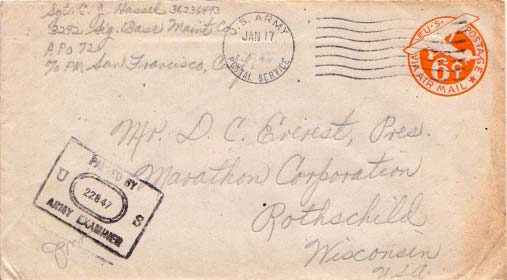 Sgt. C. J. Hassel 36236493
3292 Sig. Base Maint Co.
APO 72
c/o PM San Francisco, Calif
U.S. ARMY
JAN 17
POSTAL SERVICE
U.S. POSTAGE
6¢
VIA AIR MAIL
Mr. D. C. Everest, Pres.
Marathon Corporation
Rothschild
Wisconsin
USA
PASSED BY
U 22847 S
ARMY EXAMINER